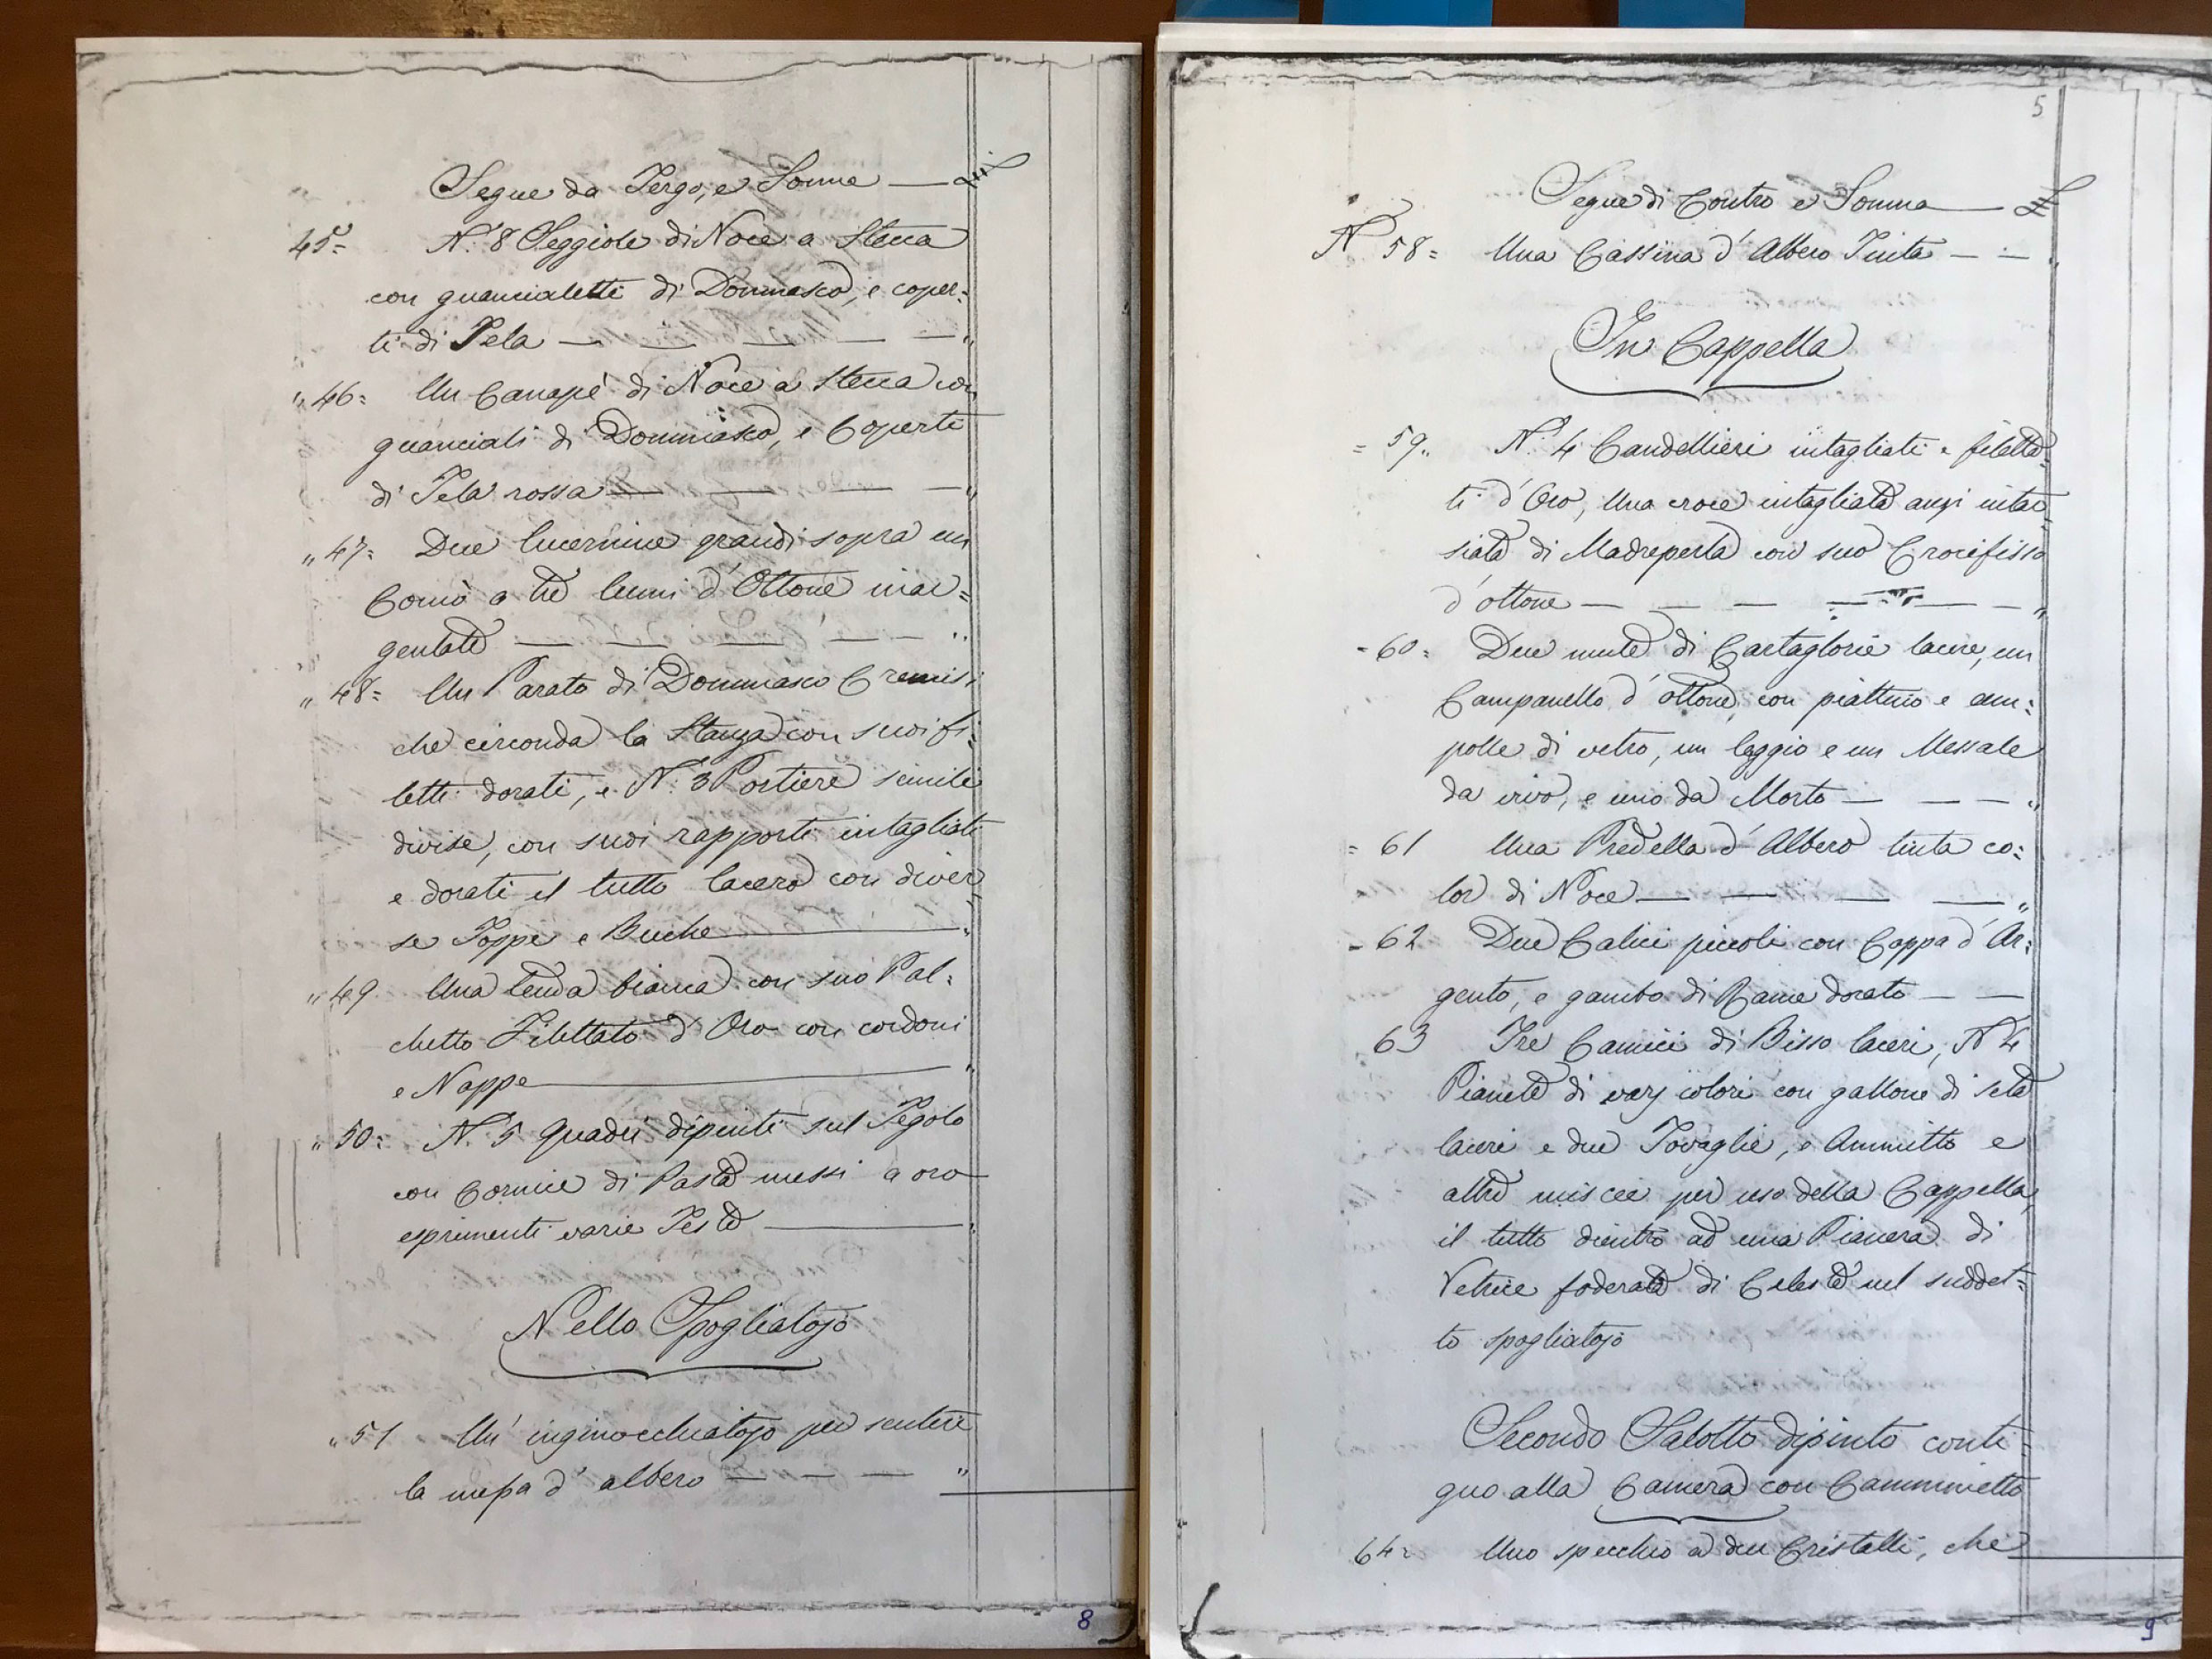 Segue da Tergo, e Somma —
45= N.º 8 Seggiole di Noce a Stecca
con guancialetti di Dommasco, e coper=
ti di Tela — — — — — "
" 46= Un Canapè di Noce a Stecca con
guanciali di Dommasco, e Coperti
di Tela rossa — — — — "
" 47= Due lucernine grandi sopra un
Comò a tre lumi d'Ottone inar=
gentate — — — — — "
" 48= Un Parato di Dommasco Cremisi
che circonda la Stanza con suoi fi=
letti dorati, e N.º 3 Portiere simili
divise, con suoi rapporti intagliati
e dorati il tutto lacero con diver
se Toppe e Buche — "
" 49 Una tenda bianca con suo Pal=
chetto Filettato d'Oro con cordoni
e Nappe — "
" 50= N. 5 Quadri dipinti sul Tegolo
con Cornice di Pasta messi a oro
esprimenti varie Teste — "
Nello Spogliatojo
" 51 Un' inginocchiatojo per sentire
la messa d'albero — — — "
8
5
Segue di Contro e Somma —
N.º 58= Una Cassina d'Albero Tinta — — "
In Cappella
= 59.. N.º 4 Candellieri intagliati e filetta=
ti d'Oro, Una croce intagliata anzi intar
siata di Madreperla con suo Crocifisso
d'ottone — — — — — — "
= 60= Due mute di Cartaglorie lacere, un
Campanello d'ottone, con piattino e am=
polle di vetro, un leggio e un Messale
da vivo, e uno da Morto — — — "
= 61 Una Predella d'Albero tinta co=
lor di Noce — — — — "
= 62 Due Calici piccoli con Coppa d'Ar=
gento, e gambo di Rame dorato — —
63 Tre Camici di Bisso laceri, N 4
Pianete di varj colori con gallone di seta
laceri e due Tovaglie, e Ammitto e
altre miscee per uso della Cappella,
il tutto dentro ad una Pianera di
Vetrice foderata di Celeste nel suddet=
to spogliatojo
Secondo Salotto dipinto conti=
guo alla Camera con Camminetto
64= Uno specchio a due Cristalli, che
9